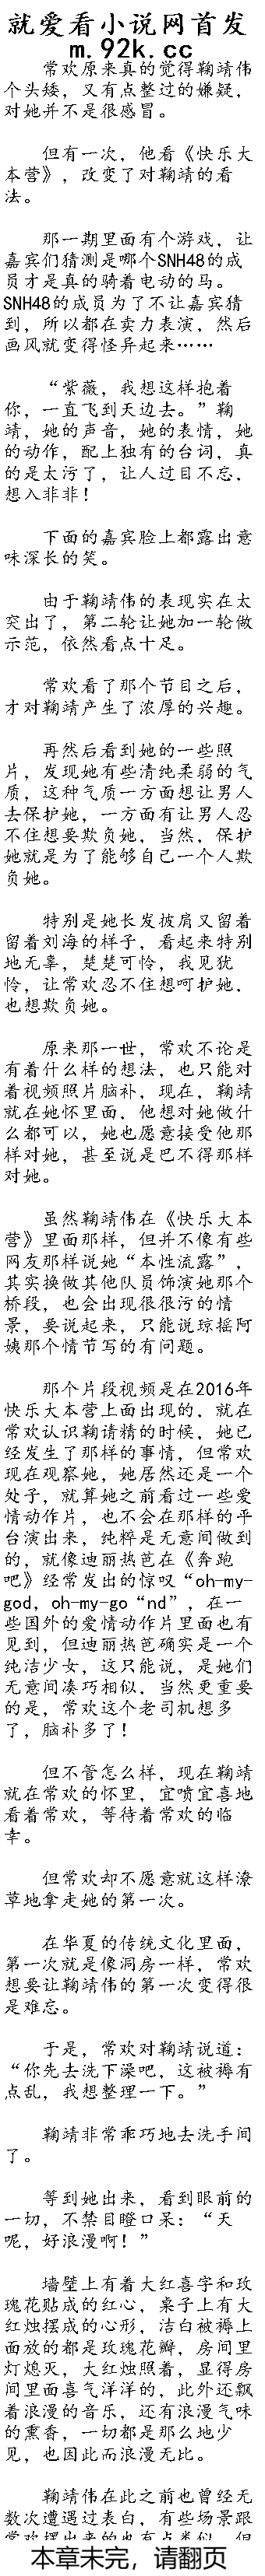 就爱看小说网首发
m.92k.cc
常欢原来真的觉得鞠靖伟
个头矮，又有点整过的嫌疑，
对她并不是很感冒。
但有一次，他看《快乐大
本营》，改变了对鞠靖的看
法。
那一期里面有个游戏，让
嘉宾们猜测是哪个SNH48的成
员才是真的骑着电动的马。
SNH48的成员为了不让嘉宾猜
到，所以都在卖力表演，然后
画风就变得怪异起来……
“紫薇，我想这样抱着
你，一直飞到天边去。”鞠
靖，她的声音，她的表情，她
的动作，配上独有的台词，真
的是太污了，让人过目不忘，
想入非非！
下面的嘉宾脸上都露出意
味深长的笑。
由于鞠靖伟的表现实在太
突出了，第二轮让她加一轮做
示范，依然看点十足。
常欢看了那个节目之后，
才对鞠靖产生了浓厚的兴趣。
再然后看到她的一些照
片，发现她有些清纯柔弱的气
质，这种气质一方面想让男人
去保护她，一方面有让男人忍
不住想要欺负她，当然，保护
她就是为了能够自己一个人欺
负她。
特别是她长发披肩又留着
留着刘海的样子，看起来特别
地无辜，楚楚可怜，我见犹
怜，让常欢忍不住想呵护她，
也想欺负她。
原来那一世，常欢不论是
有着什么样的想法，也只能对
着视频照片脑补，现在，鞠靖
就在她怀里面，他想对她做什
么都可以，她也愿意接受他那
样对她，甚至说是巴不得那样
对她。
虽然鞠靖伟在《快乐大本
营》里面那样，但并不像有些
网友那样说她“本性流露”，
其实换做其他队员饰演她那个
桥段，也会出现很很污的情
景，要说起来，只能说琼摇阿
姨那个情节写的有问题。
那个片段视频是在2016年
快乐大本营上面出现的，就在
常欢认识鞠请精的时候，她已
经发生了那样的事情，但常欢
现在观察她，她居然还是一个
处子，就算她之前看过一些爱
情动作片，也不会在那样的平
台演出来，纯粹是无意间做到
的，就像迪丽热芭在《奔跑
吧》经常发出的惊叹“oh-my-
god，oh-my-go“nd”，在一
些国外的爱情动作片里面也有
见到，但迪丽热芭确实是一个
纯洁少女，这只能说，是她们
无意间凑巧相似，当然更重要
的是，常欢这个老司机想多
了，脑补多了！
但不管怎么样，现在鞠靖
就在常欢的怀里，宜喷宜喜地
看着常欢，等待着常欢的临
幸。
但常欢却不愿意就这样潦
草地拿走她的第一次。
在华夏的传统文化里面，
第一次就是像洞房一样，常欢
想要让鞠靖伟的第一次变得很
是难忘。
于是，常欢对鞠靖说道：
“你先去洗下澡吧，这被褥有
点乱，我想整理一下。”
鞠靖非常乖巧地去洗手间
了。
等到她出来，看到眼前的
一切，不禁目瞪口呆：“天
呢，好浪漫啊！”
墙壁上有着大红喜字和玫
瑰花贴成的红心，桌子上有大
红烛摆成的心形，洁白被褥上
面放的都是玫瑰花瓣，房间里
灯熄灭，大红烛照着，显得房
间里面喜气洋洋的，此外还飘
着浪漫的音乐，还有浪漫气味
的熏香，一切都是那么地少
见，也因此而浪漫无比。
鞠靖伟在此之前也曾经无
数次遭遇过表白，有些场景跟
常欢摆出来的也有点类似，但
本章未完，请翻页